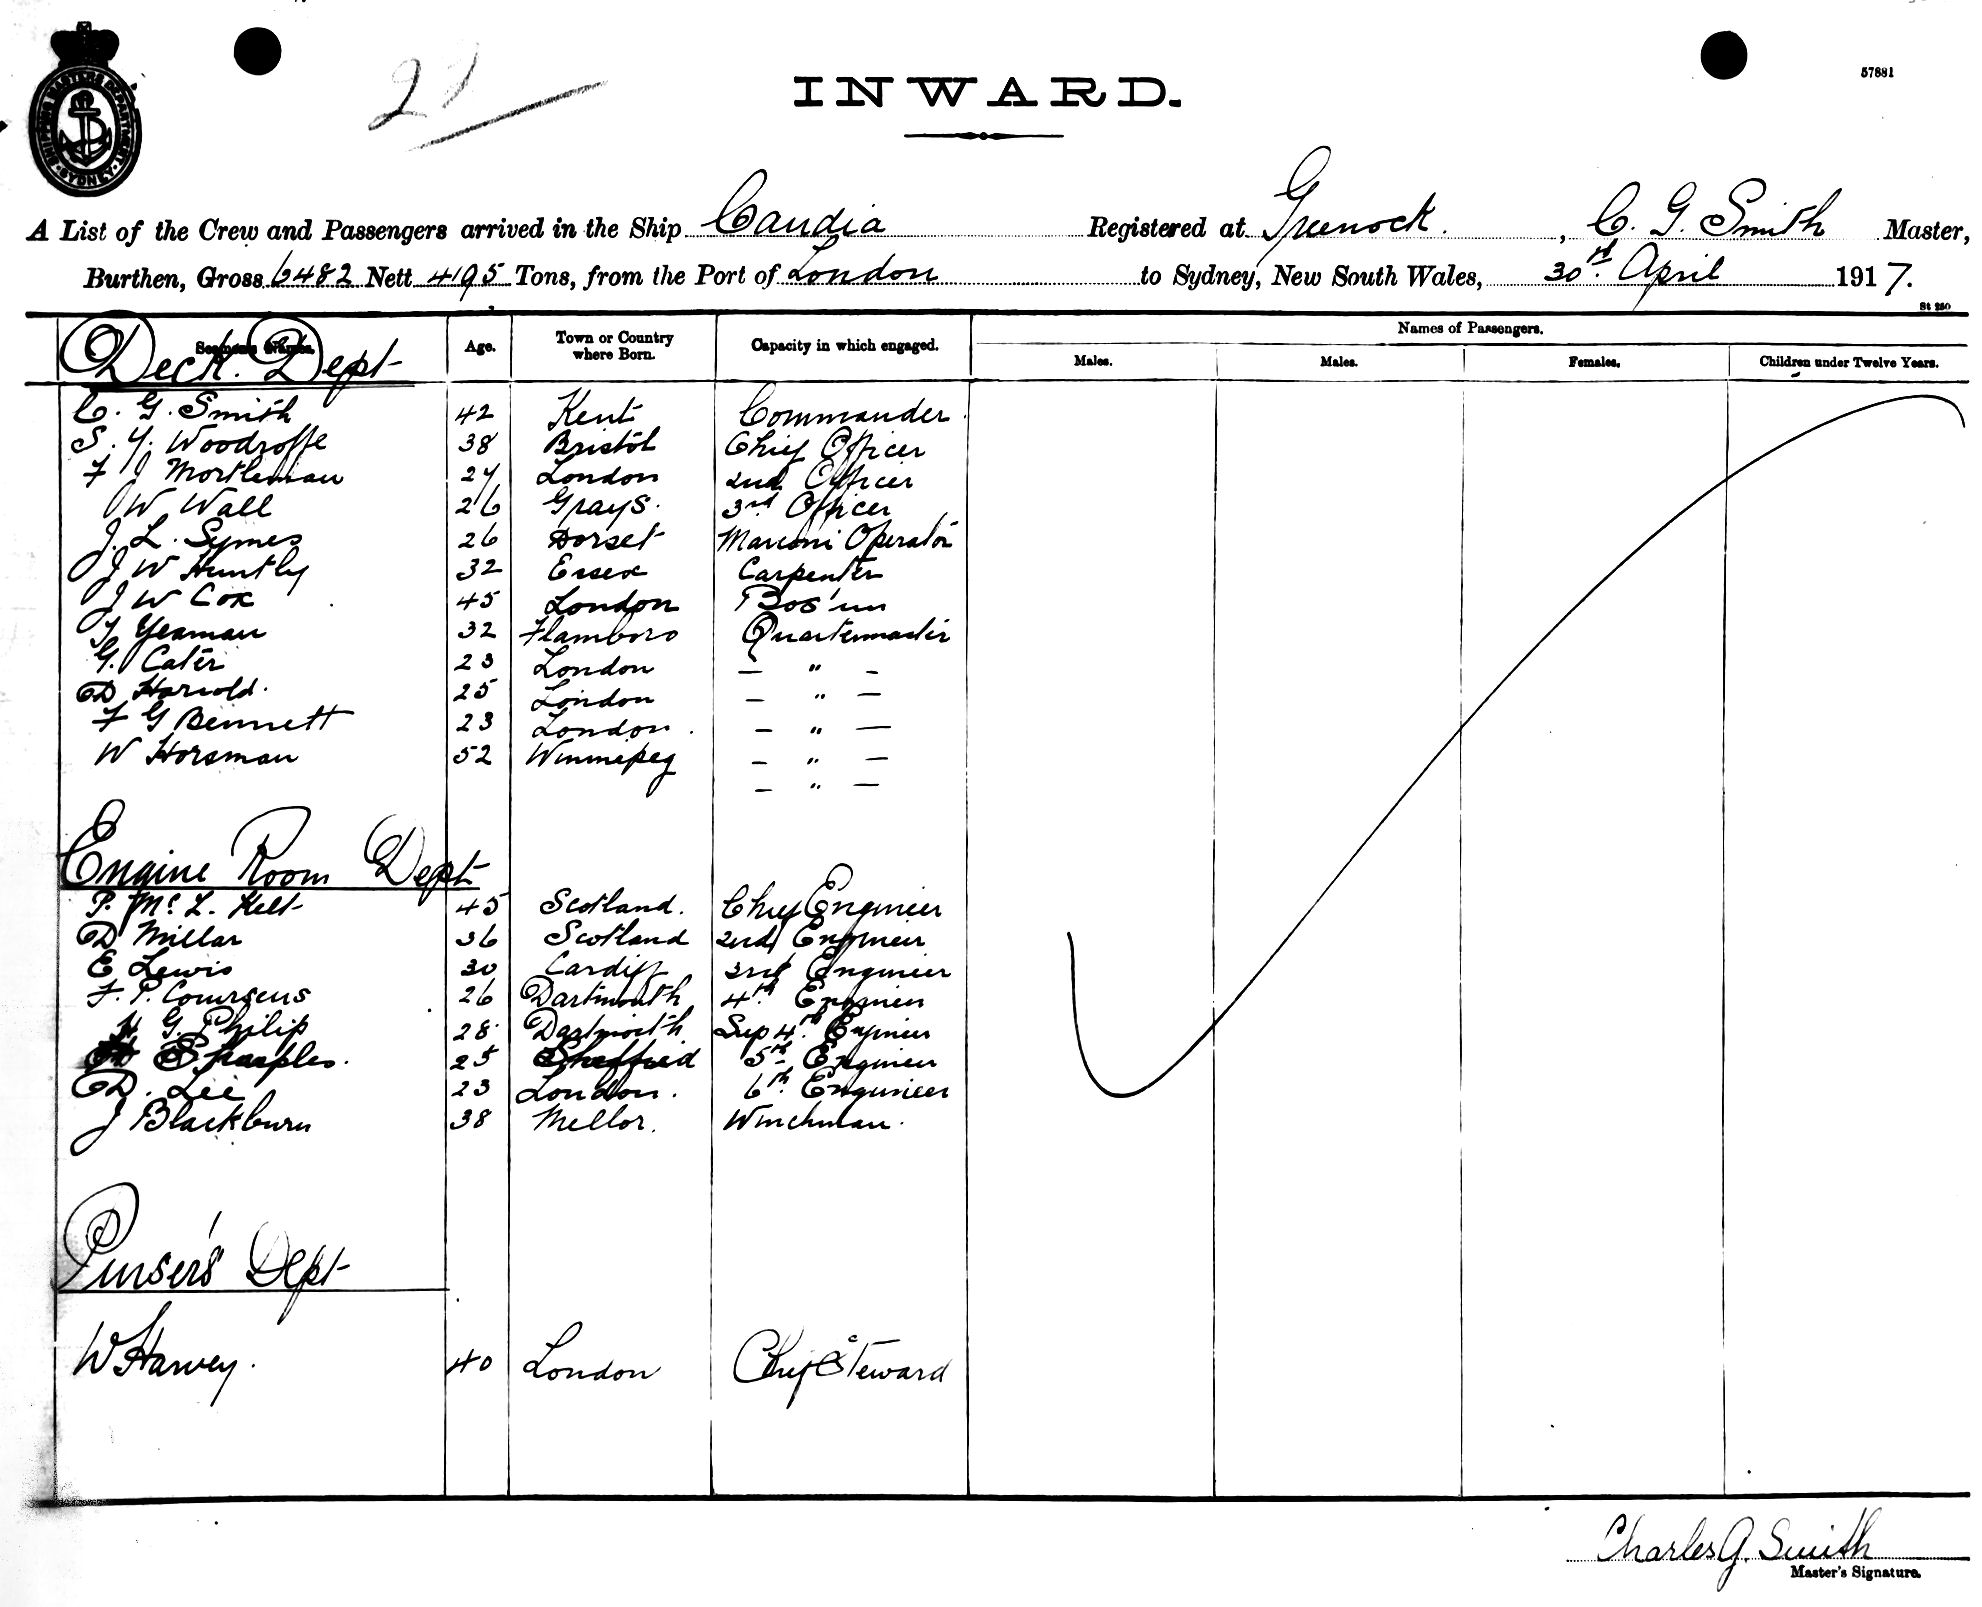 21
INWARD.
57881
SHIPPING MASTERS DEPARTMENT SYDNEY
A List of the Crew and Passengers arrived in the Ship Candia Registered at Greenock. , C. G. Smith Master,
Burthen, Gross 6482 Nett 4195 Tons, from the Port of London to Sydney, New South Wales, 30th April 1917.
St 250
Seamen's Names. Age. Town or Country where Born. Capacity in which engaged. Names of Passengers.
Males. Males. Females. Children under Twelve Years.
Deck. Dept
C. G. Smith 42 Kent Commander
S. Y. Woodroffe 38 Bristol Chief Officer
F J Mortleman 27 London 2nd Officer
W Wall 26 Grays. 3rd Officer
J. L. Symes 26 Dorset Marconi Operator
J W Huntly 32 Essex Carpenter
J W Cox 45 London Bos'un
Yeaman 32 Flamboro Quartermaster
G. Cater 23 London — " -
D Harold. 25 London — " —
F G Bennett 23 London. — " —
W Horsman 52 Winnipeg — " —
— " —
Engine Room Dept
P. Mc L. Kelt 45 Scotland. Chief Engineer
D Millar 36 Scotland 2nd Engineer
E Lewis 30 Cardiff 3rd Engineer
F. P. 26 Dartmouth 4th Engineer
H G. Philip 28 Dartmouth Sup 4th. Engineer
Sharples. 25 Sheffield 5th Engineer
D. Lee 23 London. 6th. Engineer
J Blackburn 38 Mellor. Winchman.
Purser's Dept
W Harvey. 40 London Chief Steward
Charles G. Smith
Master's Signature.